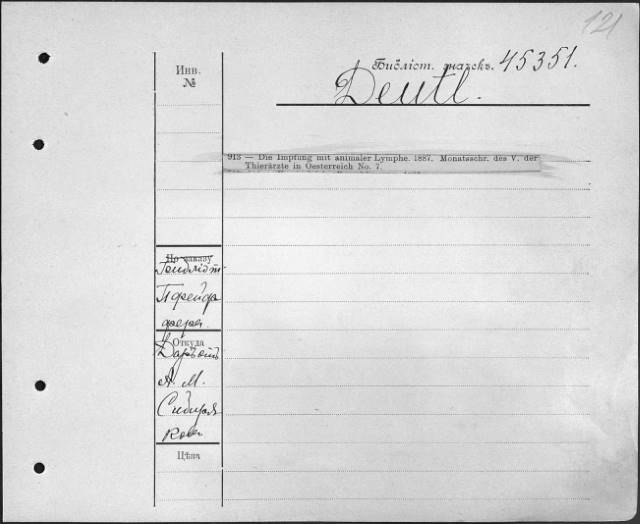 121
Инв.
№
Библіот. значекъ. 45351.
Deutl.
913 — Die Impfung mit animaler Lymphe. 1887. Monatsschr. des V. der
Thierärzte in Oesterreich No. 7.
По заказу
Пфейф
фера
Откуда
Даръ отъ
А. М.
Сибиря
кова
Цѣна